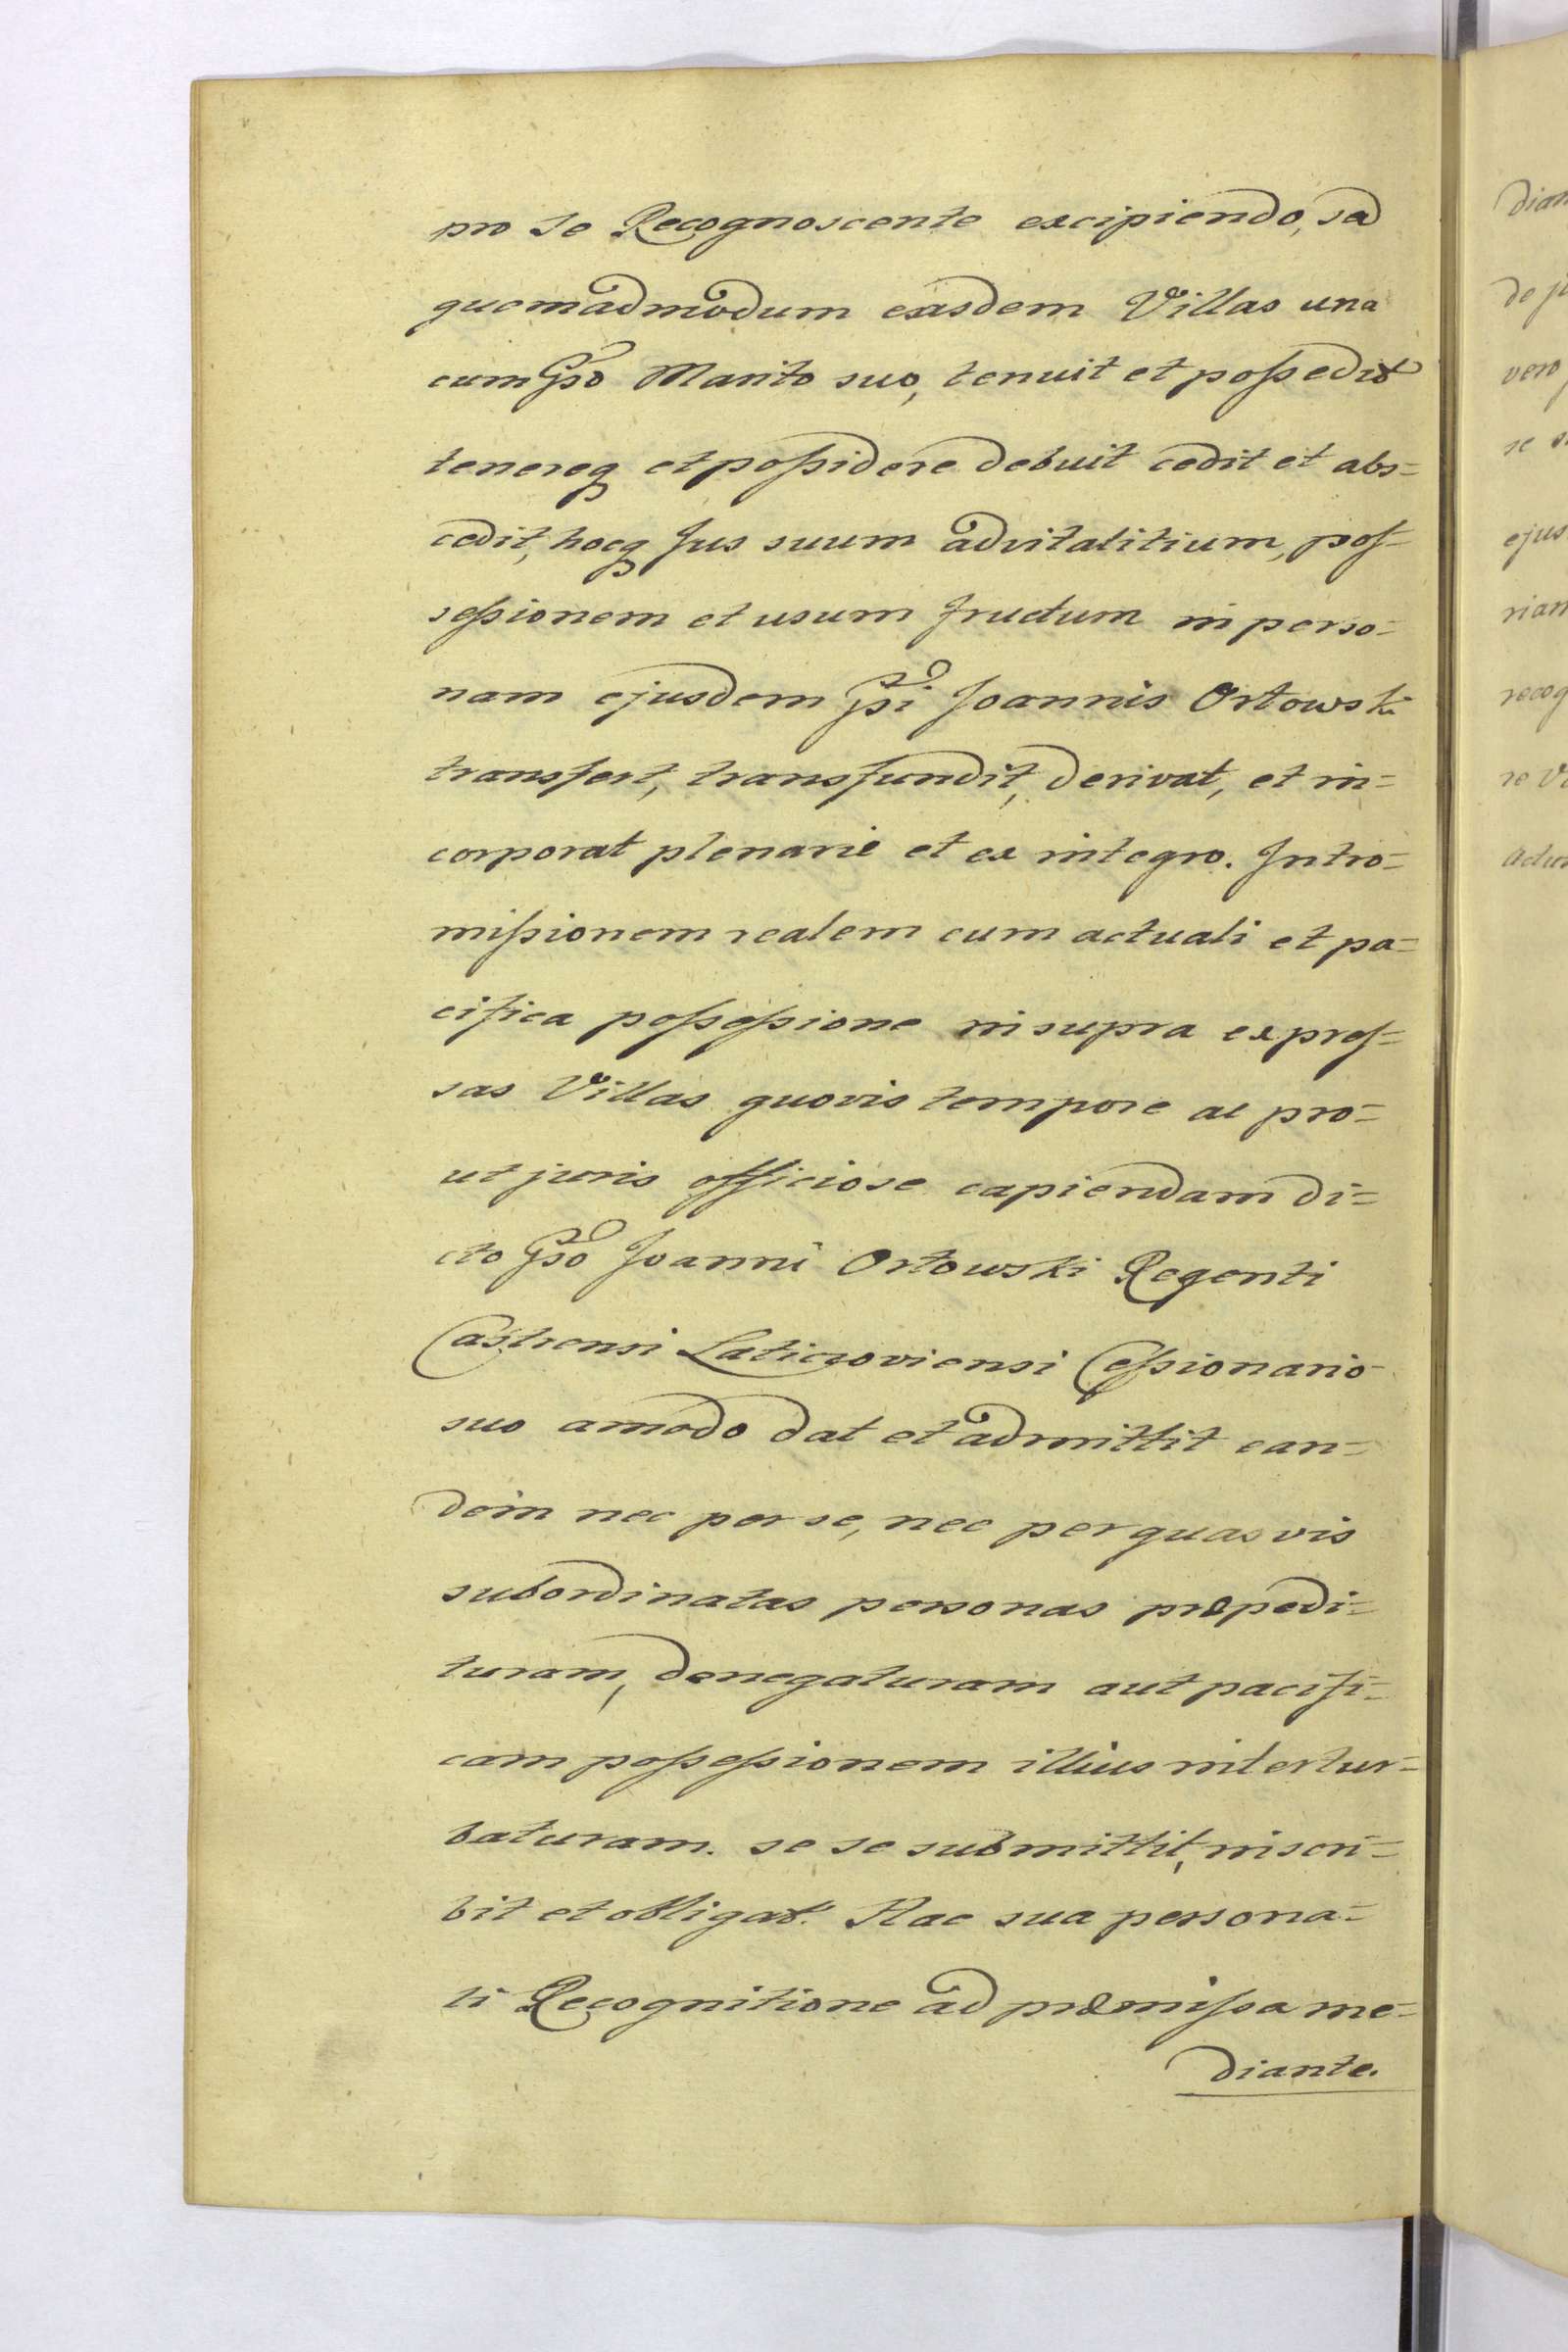 pro se Recognoscente excipiendo, sed
quemadmodum easdem Villas una
cum Gso Marito suo, tenuit et possedit
tenereq et possidere debuit cedit et abs=
cedit, hocq Jus suum advitalitium, pos=
sessionem et usum fructum in perso=
nam ejusdem Gsi Joannis Orłowski
transfert, transfundit, derivat, et in=
corporat plenarie et ex integro. Intro=
missionem realem cum actuali et pa=
cifica possessione in supra expres=
sas Villas quovis tempore ac pro=
ut juris officiose capiendam di=
cto Gso Joanni Orłowski Regenti
Castrensi Laticzoviensi Cessionario
suo amodo dat et admittit ean=
dem nec per se, nec per quasvis
subordinatas personas præpedi=
turam, denegaturam aut pacifi=
cam possessionem illius intertur=
baturam. se se submittit, inscri=
bit et obligat. Hac sua persona=
li Recognitione ad præmissa me=
diante.
dian
de ju
vero
se
ejus
rian
recog
re Vi